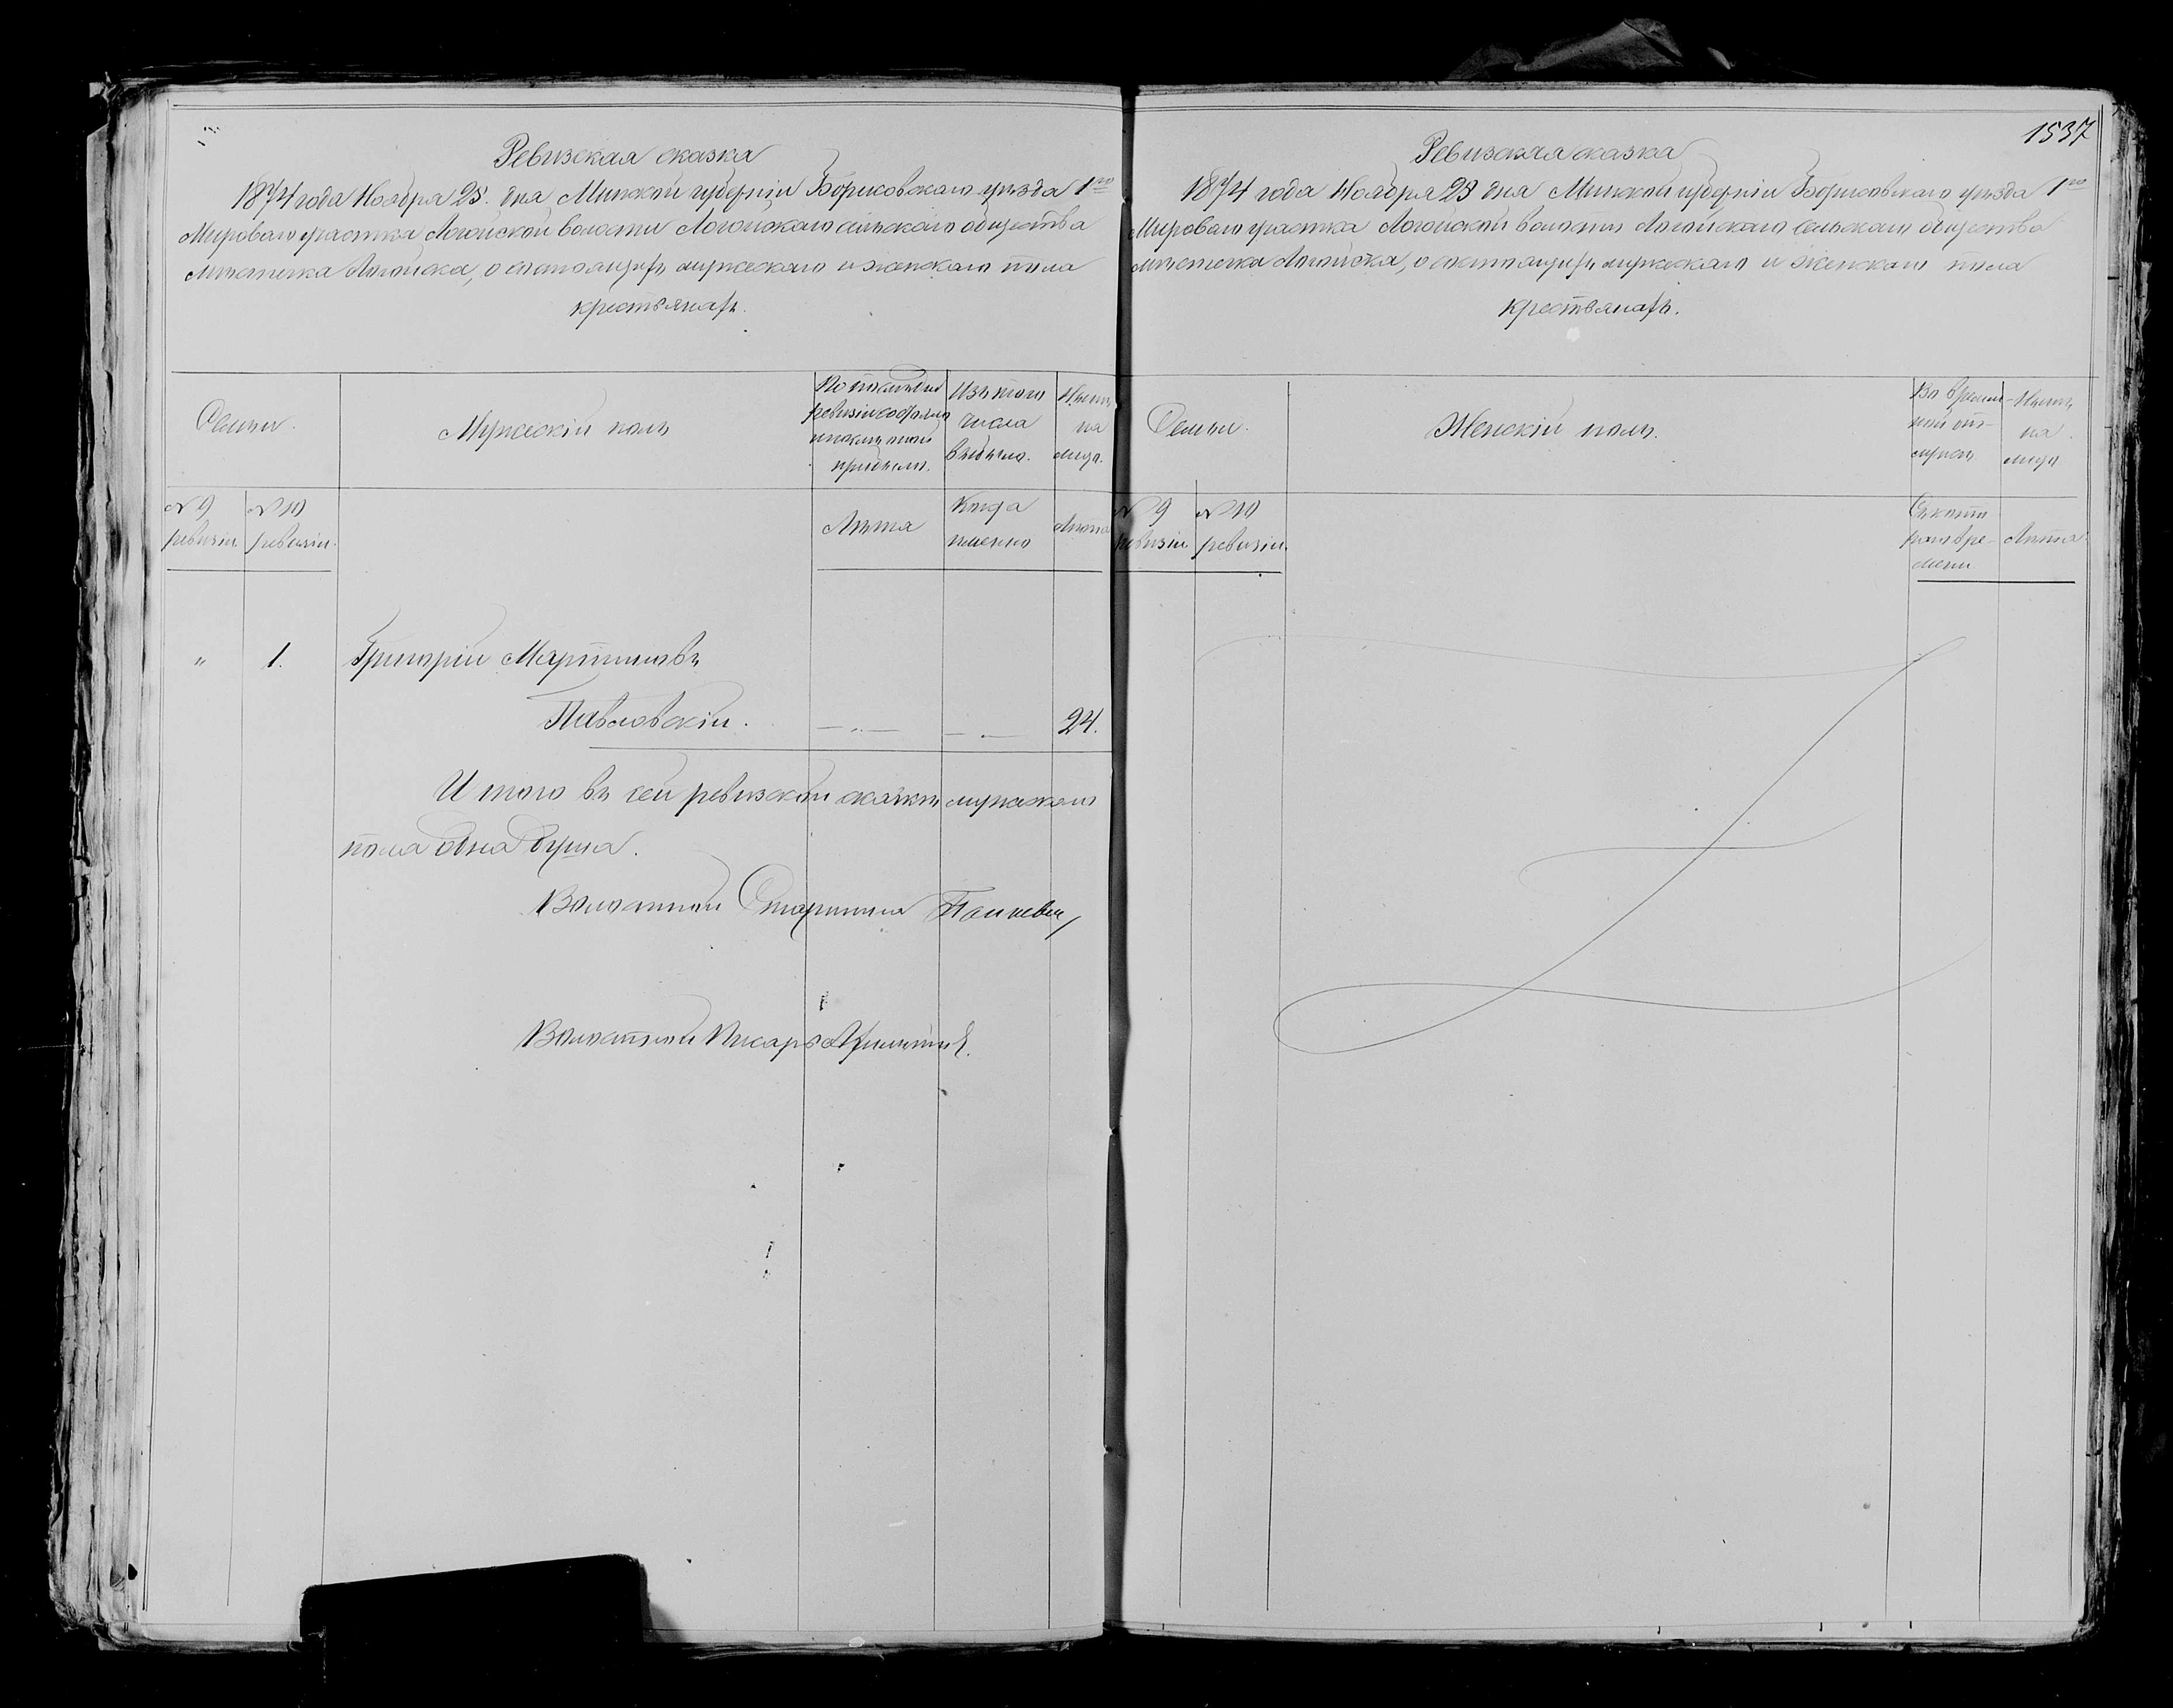 Ревизская сказка
1874 года Ноября 25. дня Минской губерніи Борисовскаго уѣзда 1го
Мироваго участка Логойской волости Логойскаго сельскаго общества
Мѣстечка Логойска, о состоящихъ мужескаго и женскаго пола
крестьянахъ.
Семьи.
Мужескій полъ
По последней ревизіи состояло и послѣ того прибыло.
Изъ того числа выбыло.
Нынѣ на лицо.
№ 9 ревизіи
№ 10 ревизіи.
Лѣта
Когда именно
Лѣта
" 1. Григорій Мартиновъ
Павловскій. 24.
И того въ сей ревизской сказкѣ мужескаго
пола одна душа.
Волостной Старшина
Волостной Писарь
1537
Ревизская сказка
1874 года Ноября 25 дня Минской губерніи Борисовскаго уѣзда 1го
Мироваго участка Логойской волости Логойскаго сельскаго общества
Мѣстечка Логойска, о состоящихъ мужескаго и женскаго пола
крестьянахъ.
Семьи.
Женскій полъ.
Во временной отлучкѣ
Нынѣ на лицо
№ 9 ревизіи
№ 10 ревизіи.
Съ котораго времени
Лѣта